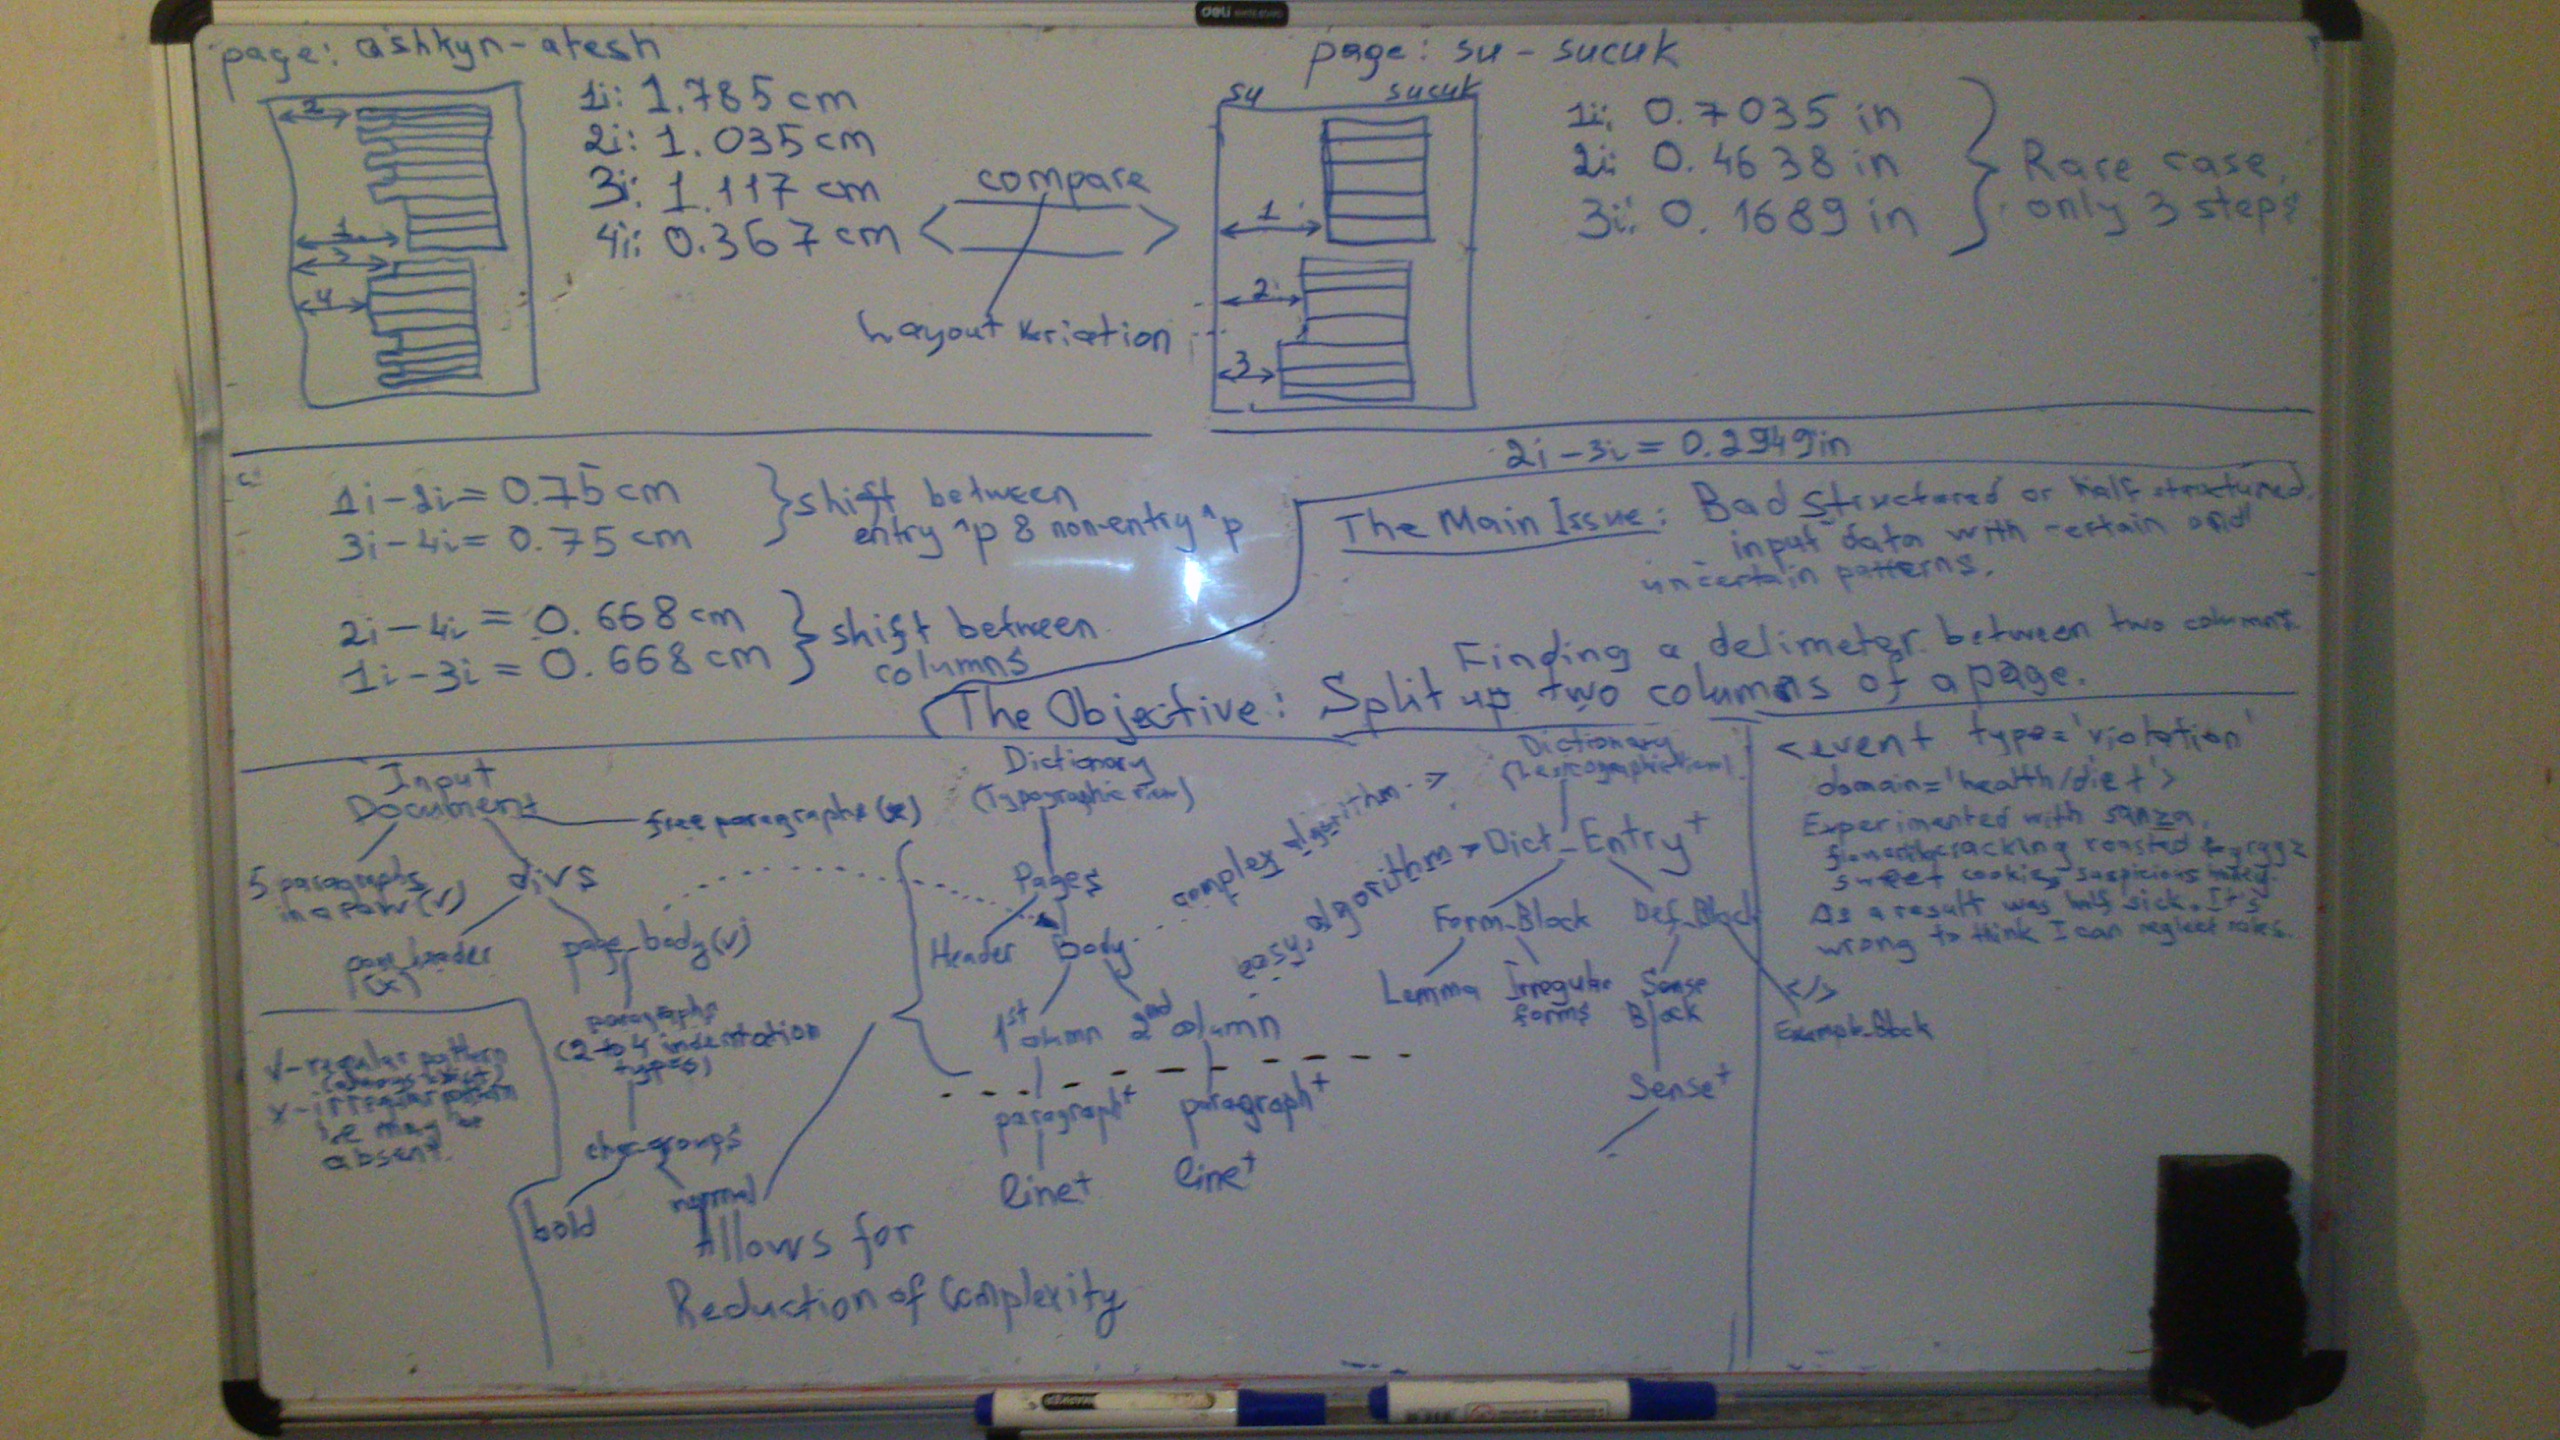 deli
page: ashkyn-atesh
2
1
3
4
1i: 1.785 cm
2i: 1.035 cm
3i: 1.117 cm
4i: 0.367 cm
compare
Layout
page: su - sucuk
su sucuk
1
2
3
1i: 0.7035 in
2i: 0.4638 in
3i: 0.1689 in
Rare case,
only 3 steps
1i-2i= 0.75 cm
3i-4i= 0.75 cm
shift between
entry ^p & non-entry ^p
2i-4i = 0.668 cm
1i-3i = 0.668 cm
shift between
columns
2i-3i = 0.2949in
The Main Issue: Bad structured or half structured
input data with certain and
uncertain patterns.
Finding a delimeter between two columns
The Objective: Split up two columns of a page.
Input
Document
free paragraphs (x)
5 paragraphs
in a (v)
divs
header
(x)
page_body(v)
paragraphs
(2 to 4 indentation
types)
groups
bold
normal
v-regular pattern
x-irregular pattern
i.e may be
absent.
Allows for
Reduction of Complexity
Dictionary
(Typographic view)
Pages
Header
Body
1st column
2nd column
paragraph+
paragraph+
line+
line+
complex algorithm
easy algorithm
Dictionary
(Lexicographic view)
Dict_Entry+
Form_Block
Def_Block
Lemma
Irregular
forms
Sense
Block
Sense+
Example_Block
<event type='violation'
domain='health/diet'>
Experimented with
cracking roasted
sweet cookies, suspicious
As a result was half sick. It's
wrong to think I can neglect rules.
</>